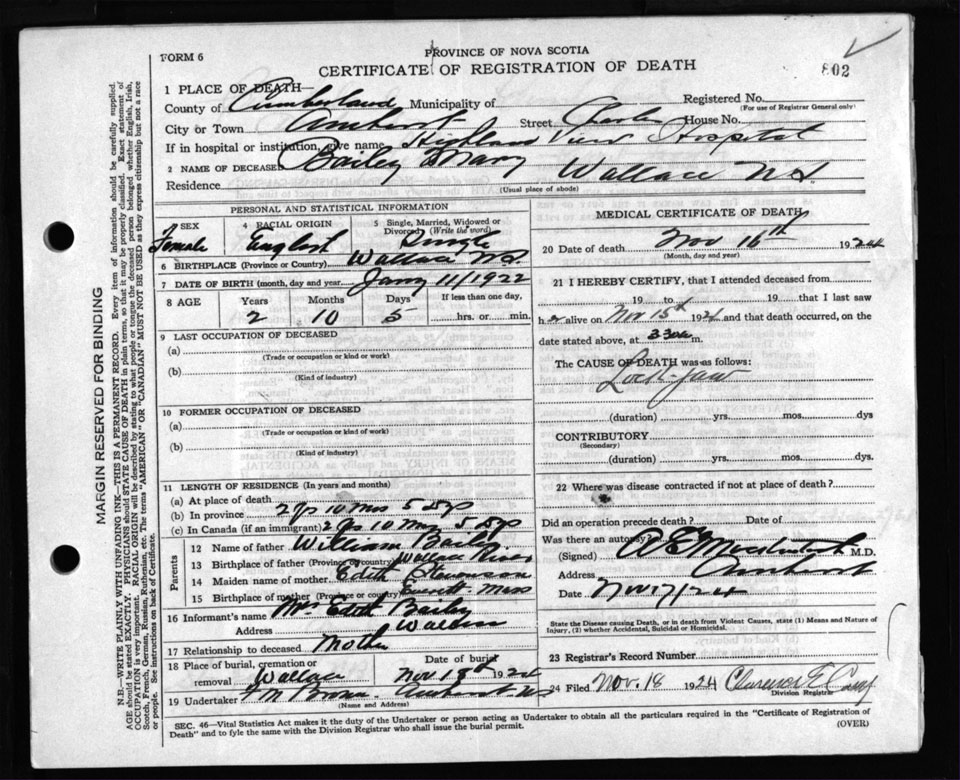 FORM 6
PROVINCE OF NOVA SCOTIA
CERTIFICATE OF REGISTRATION OF DEATH
802
1 PLACE OF DEATH
County of Cumberland Municipality of Registered No.
(For use of Registrar General only)
City or Town Amherst Street Charles House No.
If in hospital or institution, give name Highland View Hospital
2 NAME OF DECEASED Bailey Mary
Residence Wallace N.S.
(Usual place of abode)
PERSONAL AND STATISTICAL INFORMATION
3 SEX 4 RACIAL ORIGIN 5 Single, Married, Widowed or Divorced (Write the word)
Female English Single
6 BIRTHPLACE (Province or Country) Wallace N.S.
7 DATE OF BIRTH (month, day and year) Jany 11/1922
8 AGE Years Months Days If less than one day,
2 10 5 hrs. or min.
9 LAST OCCUPATION OF DECEASED
(a)
(Trade or occupation or kind or work)
(b)
(Kind of industry)
10 FORMER OCCUPATION OF DECEASED
(a)
(Trade or occupation or kind of work)
(b)
(Kind of industry)
11 LENGTH OF RESIDENCE (In years and months)
(a) At place of death
(b) In province 2 Yrs 10 Mos 5 Dys
(c) In Canada (if an immigrant) 2 Yrs 10 Mos 5 Dys
Parents
12 Name of father William Bailey
13 Birthplace of father (Province or country) Wallace River
14 Maiden name of mother Edith Stevenson
15 Birthplace of mother (Province or country) Everett Mass
16 Informant's name Mrs Edith Bailey
Address Wallace
17 Relationship to deceased Mother
18 Place of burial, cremation or removal Wallace Date of burial Nov 18th 1924
19 Undertaker Amherst N.S.
(Name and Address)
MEDICAL CERTIFICATE OF DEATH
20 Date of death Nov 16th 1924
(Month, day and year)
21 I HEREBY CERTIFY, that I attended deceased from
19 to 19 that I last saw
h er alive on Nov 15th 1924 and that death occurred, on
date stated above, at m.
The CAUSE OF DEATH was as follows:
Lock-jaw
(duration) yrs. mos. dys
CONTRIBUTORY
(Secondary)
(duration) yrs. mos. dys
22 Where was disease contracted if not at place of death?
Did an operation precede death? Date of
Was there an autopsy?
(Signed) M.D.
Address Amherst
Date Nov 17/24
State the Disease causing Death, or in death from Violent Causes, state (1) Means and Nature of
Injury, (2) whether Accidental, Suicidal or Homicidal.
23 Registrar's Record Number
24 Filed Nov. 18 1924 Clarence E
Division Registrar
SEC. 46—Vital Statistics Act makes it the duty of the Undertaker or person acting as Undertaker to obtain all the particulars required in the "Certificate of Registration of
Death" and to fyle the same with the Division Registrar who shall issue the burial permit. (OVER)
MARGIN RESERVED FOR BINDING
N.B.—WRITE PLAINLY WITH UNFADING INK—THIS IS A PERMANENT RECORD. Every item of information should be carefully supplied.
AGE should be stated EXACTLY. PHYSICIANS should STATE CAUSE OF DEATH in plain terms, so that it may be properly classified. Exact statement of
OCCUPATION is very important. RACIAL ORIGIN will be described by stating to what people or tongue the deceased person belonged whether English, Irish,
Scotch, French, German, Russian, Ruthenian, etc. The terms "AMERICAN" OR "CANADIAN" MUST NOT BE USED as they express citizenship but not a race
or people. See instructions on back of Certificate.